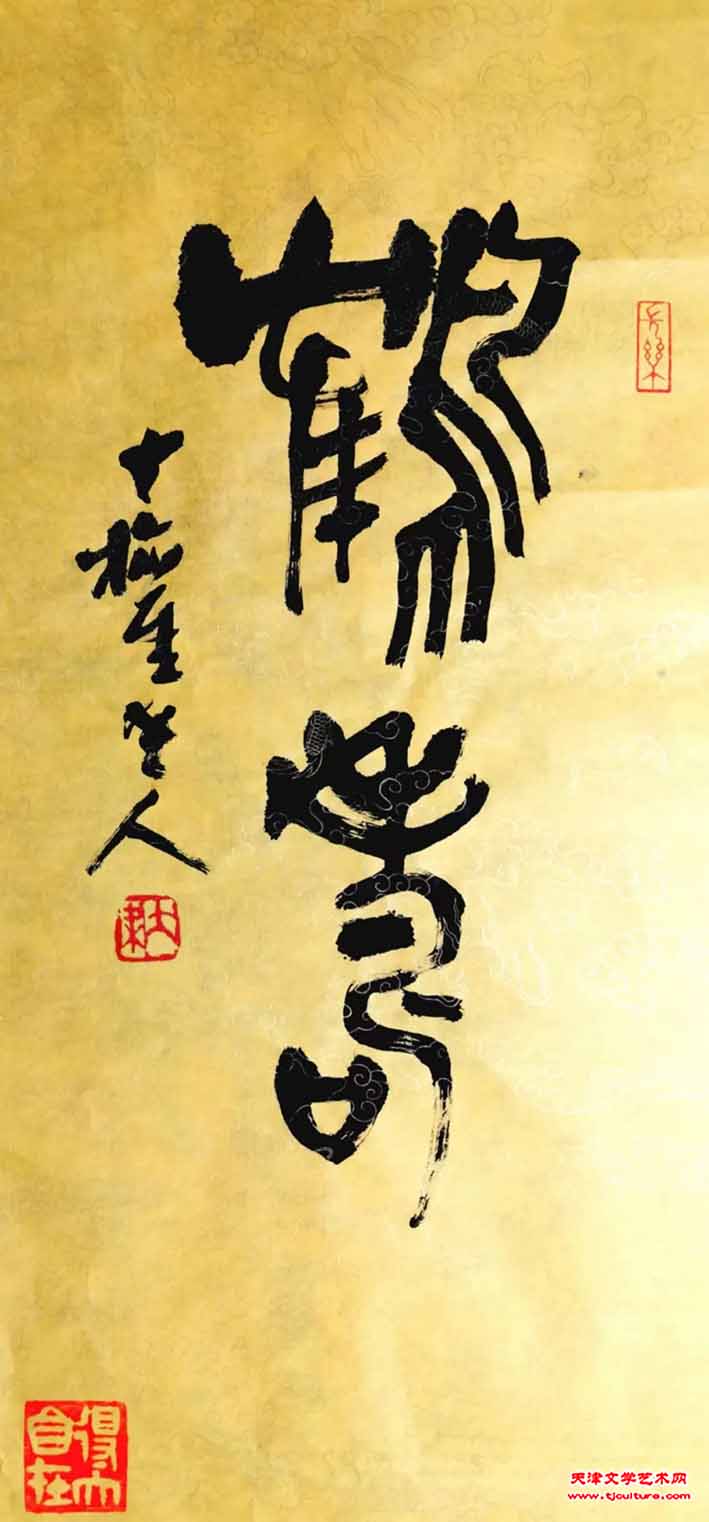 長樂
鶴壽
十 人
得大自在
天津文学艺术网
www.tjculture.com